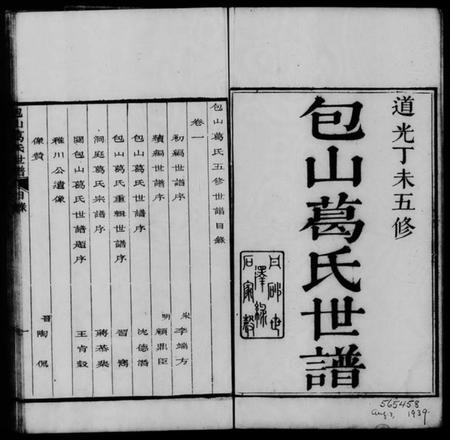 道光丁未五修
包山葛氏世譜
565458
Aug. 3, 1939.
包山葛氏五修世譜目錄
卷一
初編世譜序 宋 李端方
續編世譜序 明 顧鼎臣
包山葛氏世譜序 沈德潛
包山葛氏重輯世譜序 習寯
洞庭葛氏宗譜序 蔣恭棐
題包山葛氏世譜題序 王肯穀
稚川公遺像
像贊 晉 陶佩
包山葛氏世譜 目錄 一